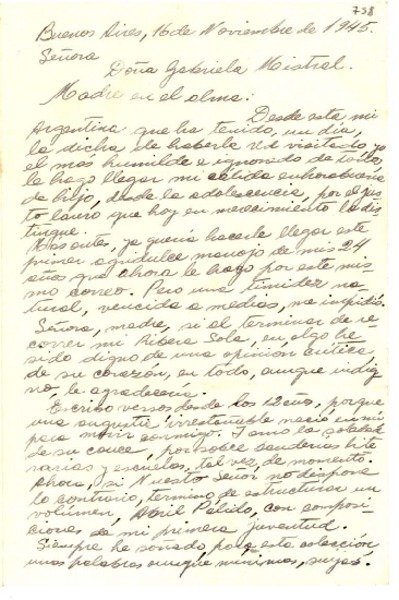 738
Buenos Aires, 16 de Noviembre de 1945.
Señora
Doña Gabriela Mistral.
Madre en el alma:
Desde esta mi
Argentina que ha tenido, un día,
la dicha de haberla Ud visitado, yo
el más humilde e ignorado de todos,
le hago llegar mi cálida enhorabuena
de hijo, desde la adolescencia, por el jus-
to lauro que hoy en merecimiento la dis-
tingue.
Mas antes, ya quería hacerle llegar este
primer agridulce manojo de mis 24
años que ahora le hago por este mis-
mo correo. Pero una timidez na-
tural, vencida a medias, me impidió.
Señora, madre, si al terminar de re-
correr mi Ribera Sola, en algo he
sido digno de una opinión crítica
de su corazón, en todo, aunque indig-
no, le agradecería.
Escribo versos desde los 12 años, porque
una angustia irrestañable nació en mí
para morir conmigo. Y amo la soledad
de su cauce, por sobre banderías lite
rarias y escuelas, tal vez, de momento.
Ahora, si Nuestro Señor no dispone
lo contrario, termino de estructurar un
volumen, Abril Pálido, con composi-
ciones de mi primera juventud.
Siempre he soñado para esta colección
unas palabras aunque mínimas, suyas.